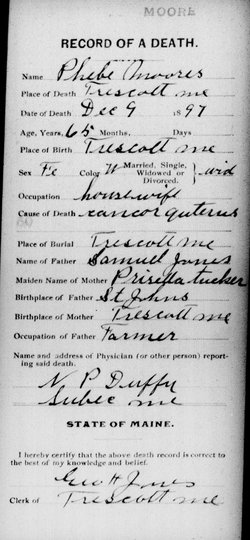 MOORE
RECORD OF A DEATH.
Name Phebe Moores
Place of Death Trescott me
Date of Death Dec 9 1897
Age, Years, 65 Months, Days
Place of Birth Trescott me
Sex Fe Color W Married, Single, Widowed or Divorced. } wid
Occupation housewife
Cause of Death cancor guterus
Place of Burial Trescott me
Name of Father Samuel Jones
Maiden Name of Mother Prisella tucker
Birthplace of Father St Johns
Birthplace of Mother Trescott me
Occupation of Father Farmer
Name and address of Physician (or other person) report-
ing said death.
N P Duffy
Lubec me
STATE OF MAINE.
I hereby certify that the above death record is correct to
the best of my knowledge and belief.
Geo H Jones
Clerk of Trescott me